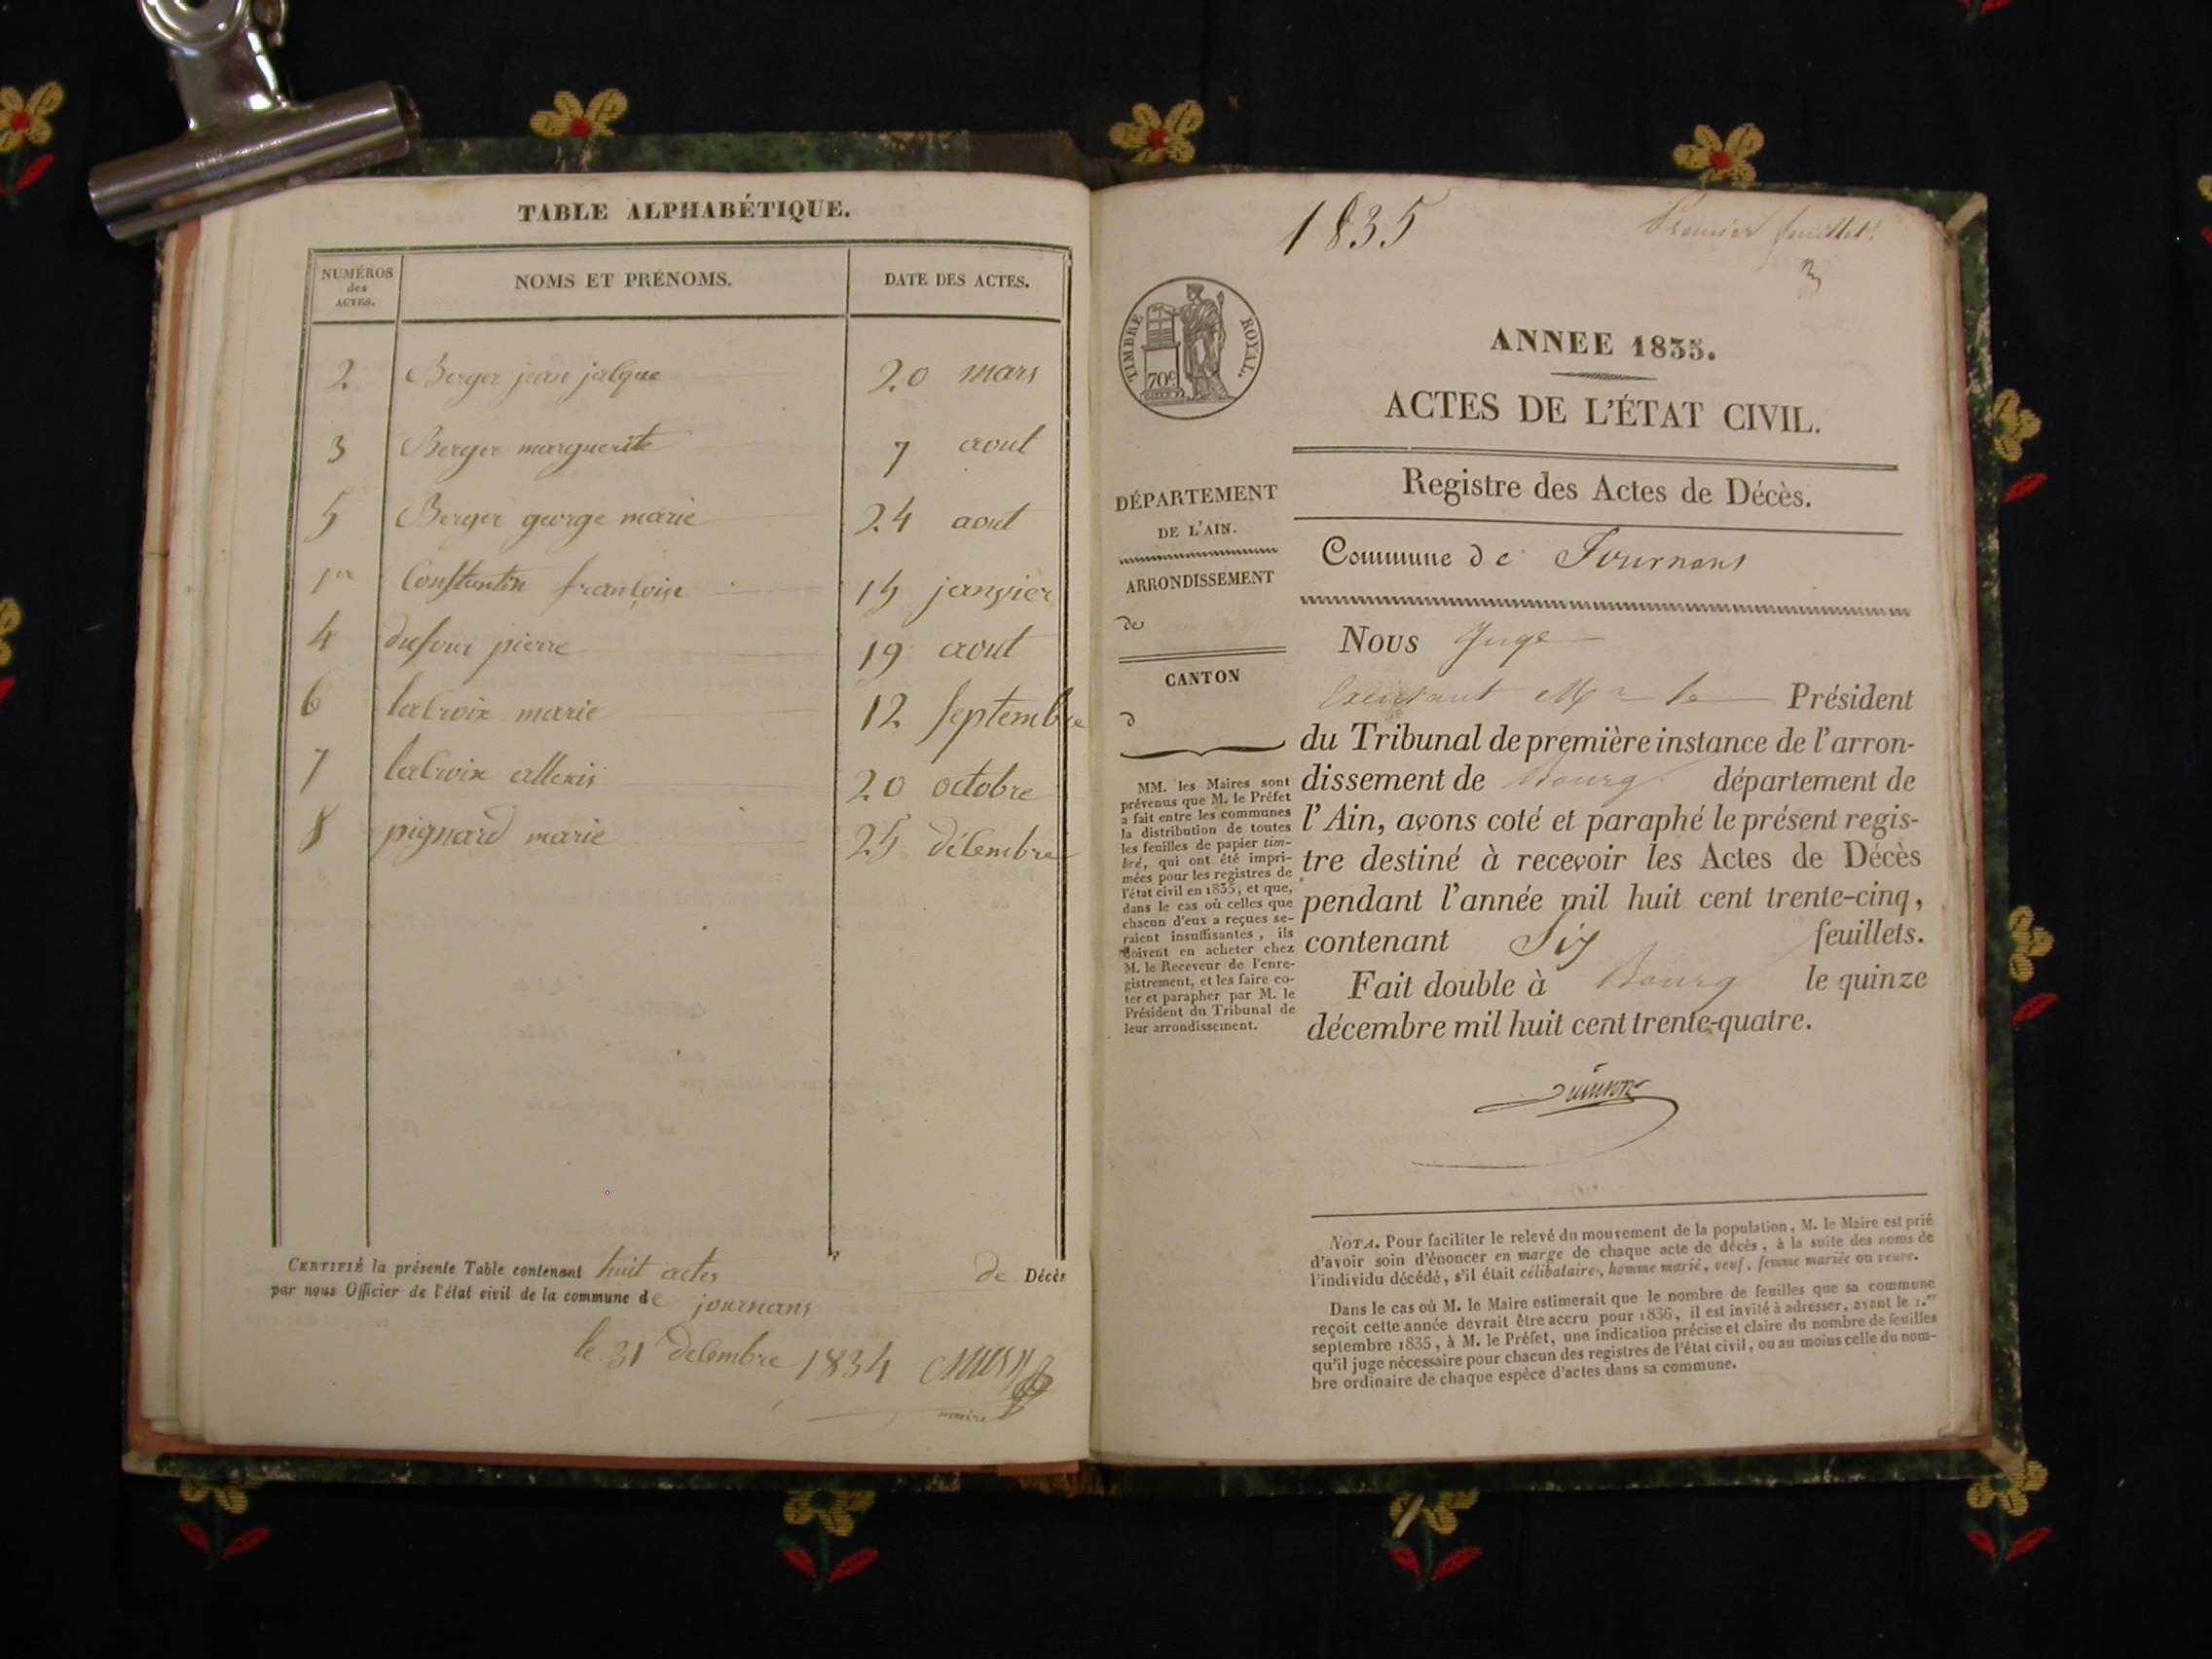 TABLE ALPHABÉTIQUE.
NUMÉROS
des
ACTES.
NOMS ET PRÉNOMS.
DATE DES ACTES.
2 Berger jean jalque 20 mars
3 Berger marguerite 7 aout
5 Berger george marie 24 aout
1er Constantin françoise 15 janvier
4 dufour pierre 19 aout
6 lacroix marie 12 septembre
7 lacroix allexis 20 octobre
8 pignard marie 25 décembre
CERTIFIÉ la présente Table contenant huit actes de Décès
par nous Officier de l'état civil de la commune de journans
le 31 decembre 1834
maire
1835
Premier feuillet.
TIMBRE ROYAL.
70c
ANNEE 1835.
ACTES DE L'ÉTAT CIVIL.
Registre des Actes de Décès.
DÉPARTEMENT
DE L'AIN.
ARRONDISSEMENT
de
CANTON
d
MM. les Maires sont
prévenus que M. le Préfet
a fait entre les communes
la distribution de toutes
les feuilles de papier tim-
bré, qui ont été impri-
mées pour les registres de
l'état civil en 1835, et que,
dans le cas où celles que
chacun d'eux a reçues se-
raient insuffisantes, ils
doivent en acheter chez
M. le Receveur de l'enre-
gistrement, et les faire co-
ter et parapher par M. le
Président du Tribunal de
leur arrondissement.
Commune de Journans
Nous Juge
Mr le Président
du Tribunal de première instance de l'arron-
dissement de Bourg département de
l'Ain, avons coté et paraphé le présent regis-
tre destiné à recevoir les Actes de Décès
pendant l'année mil huit cent trente-cinq,
contenant Six feuillets.
Fait double à Bourg le quinze
décembre mil huit cent trente-quatre.
NOTA. Pour faciliter le relevé du mouvement de la population, M. le Maire est prié
d'avoir soin d'énoncer en marge de chaque acte de décès, à la suite des noms de
l'individu décédé, s'il était célibataire, homme marié, veuf, femme mariée ou veuve.
Dans le cas où M. le Maire estimerait que le nombre de feuilles que sa commune
reçoit cette année devrait être accru pour 1836, il est invité à adresser, avant le 1.er
septembre 1835, à M. le Préfet, une indication précise et claire du nombre de feuilles
qu'il juge nécessaire pour chacun des registres de l'état civil, ou au moins celle du nom-
bre ordinaire de chaque espèce d'actes dans sa commune.